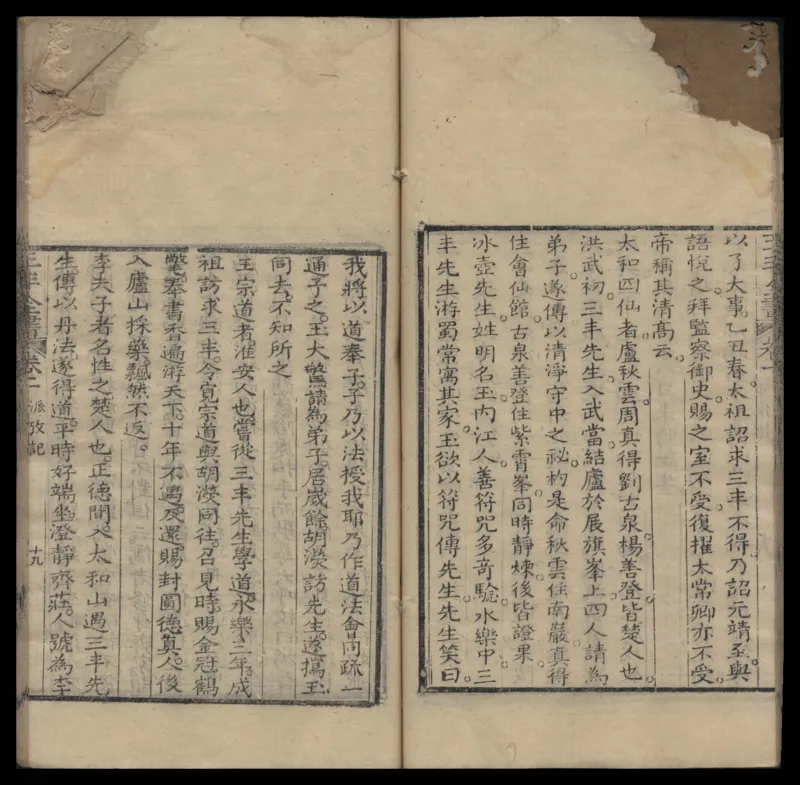 以了大事乙丑春太祖詔求三丰不得乃詔元靖至與
語悅之拜監察御史賜之室不受復擢太常卿亦不受
帝稱其清高云
太和四仙者盧秋雲周真得劉古泉楊善登皆楚人也
洪武初三丰先生入武當結廬於展旗峯上四人請為
弟子遂傳以清淨守中之祕杓是命秋雲住南巖真得
住會仙館古泉善登住紫霄峯同時靜煉後皆證果
冰壺先生姓明名玉內江人善符咒多奇驗永樂中三
丰先生游蜀常寓其家玉欲以符咒傳先生先生笑曰
我將以道奉子子乃以法授我耶乃作道法會同疏一
通子之玉大驚請為弟子居歲餘胡濙訪先生遂攜玉
同去不知所之
王宗道者淮安人也嘗從三丰先生學道永樂三年成
祖訪求三丰令寬宗道與胡濙同往召見時賜金冠鶴
氅奉書香遍游天下十年不遇及還賜封圓德真人後
入廬山採藥飄然不返
李夫子者名性之楚人也正德間入太和山遇三丰先
生傳以丹法遂得道平時好端坐澄靜齊莊人號為李
三丰全書 卷一 派攷記 十九